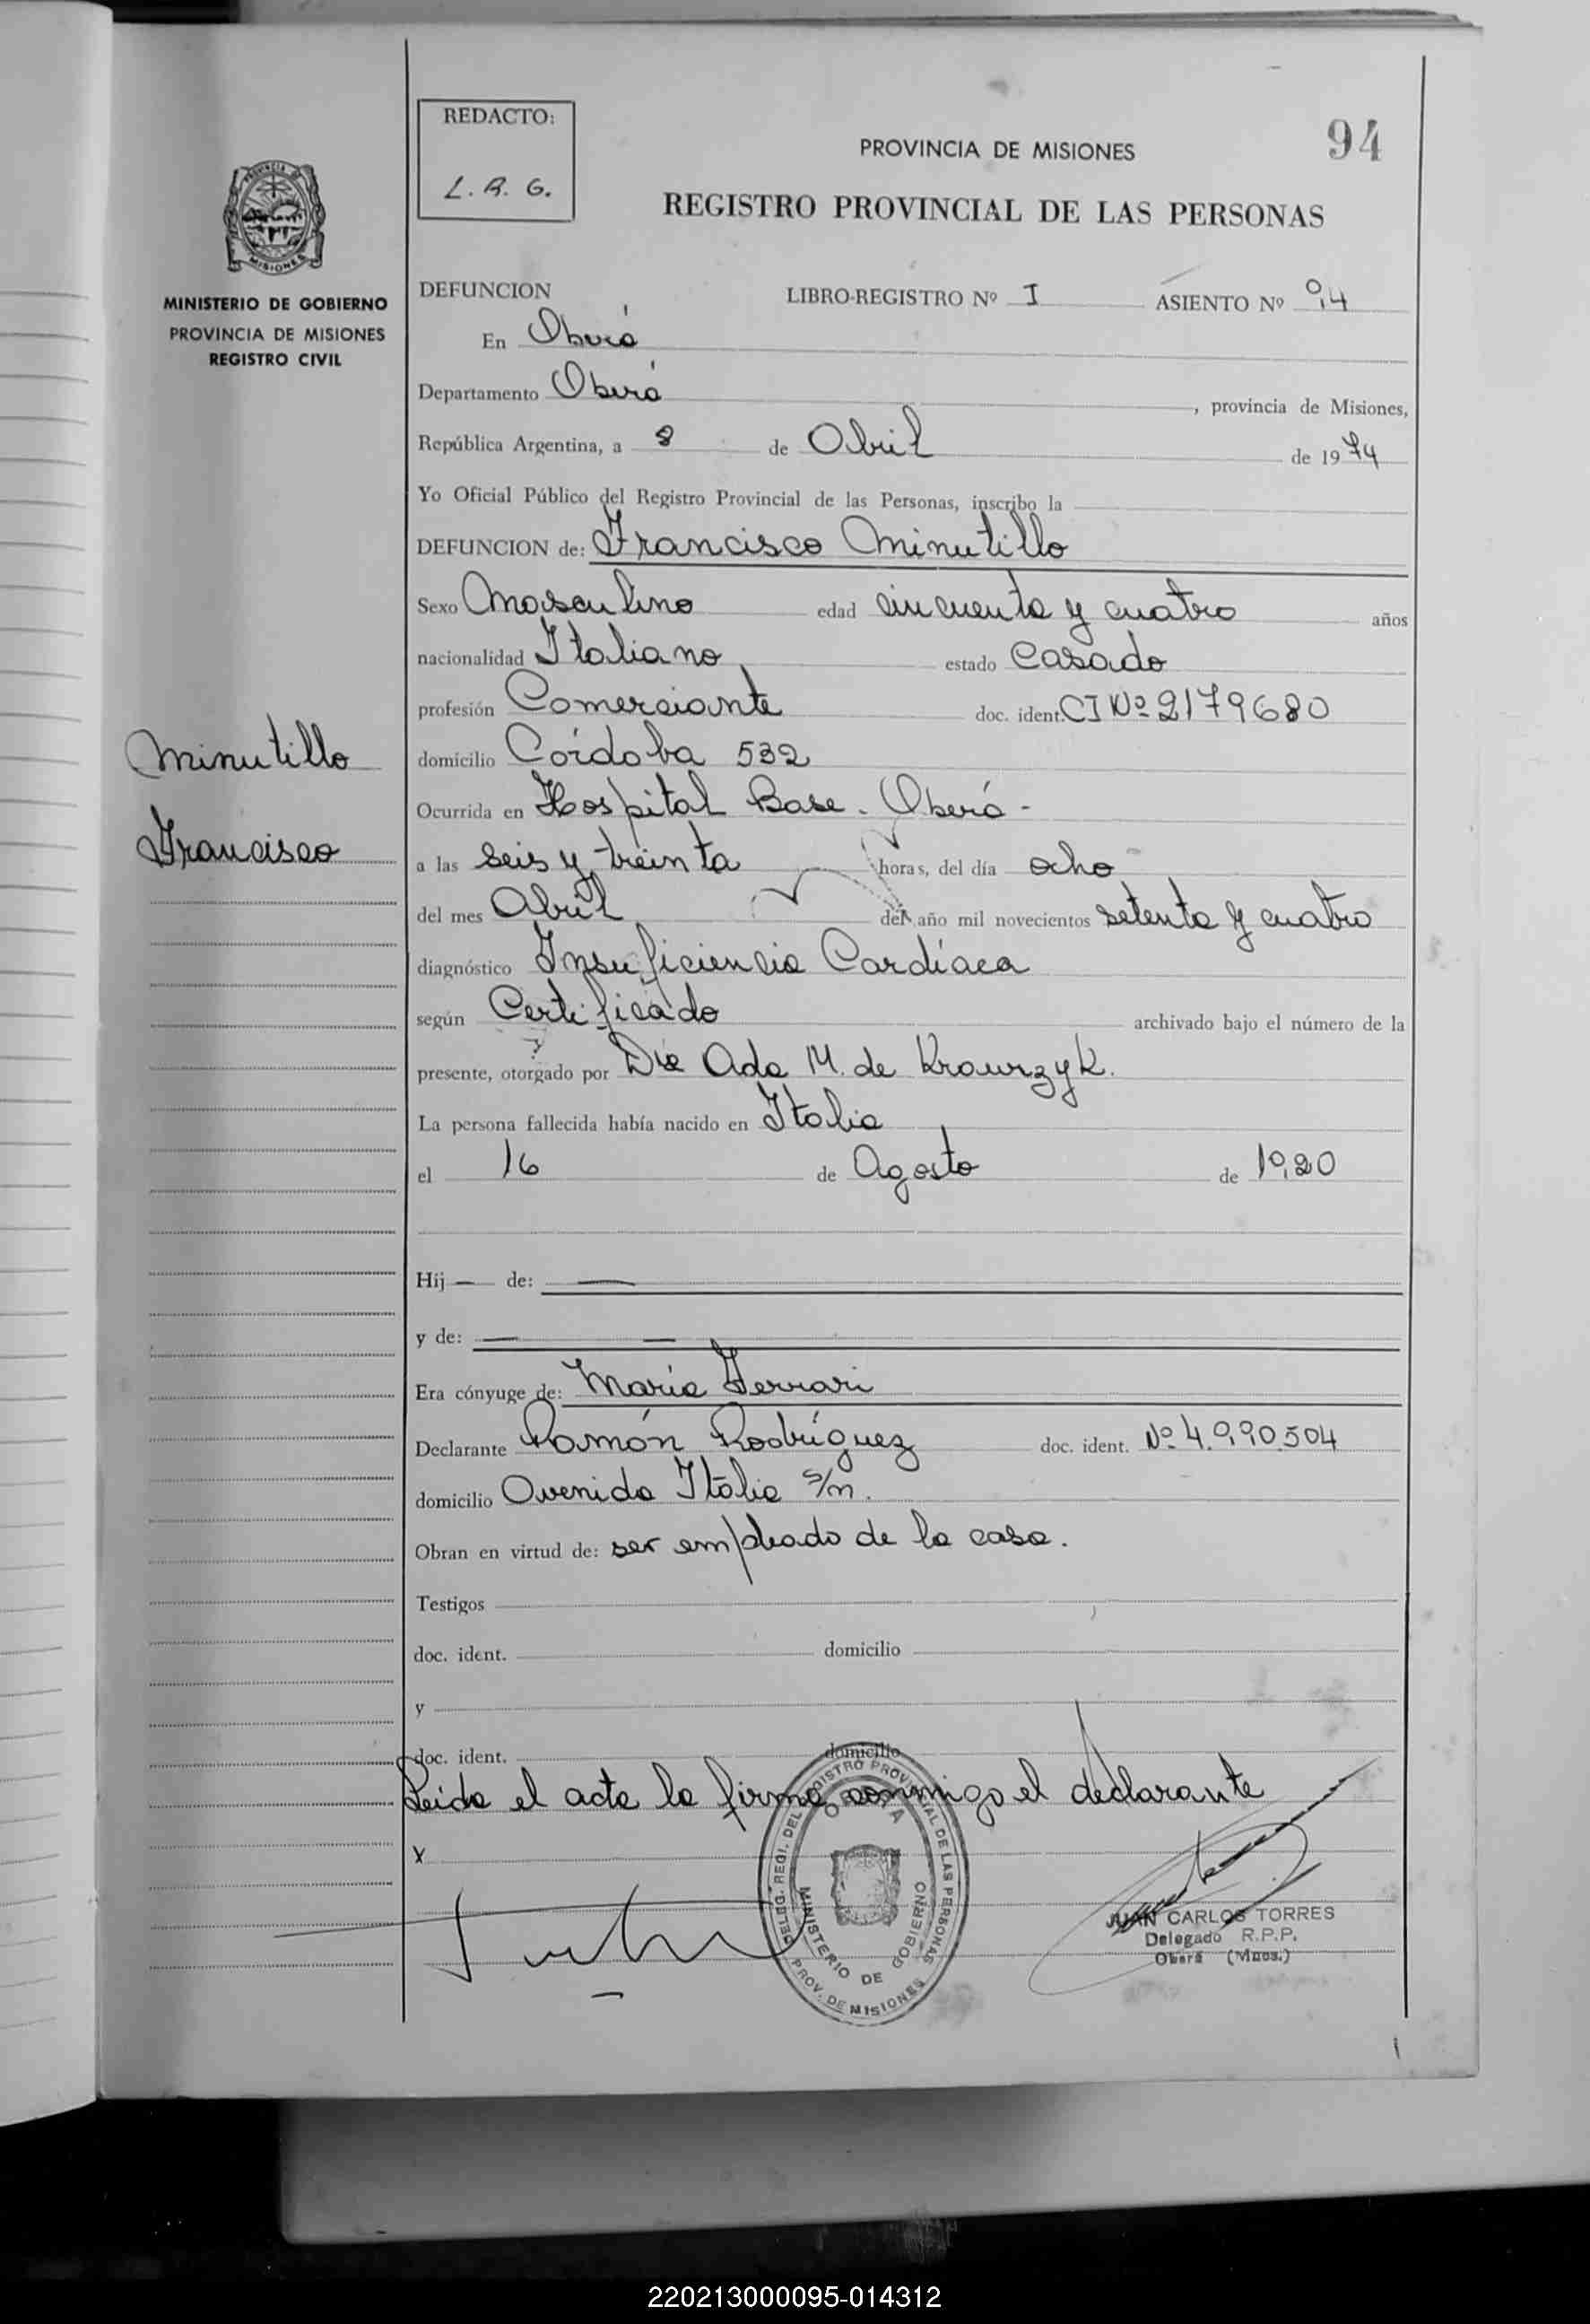 REDACTO:
L. R. G.
94
PROVINCIA DE MISIONES
REGISTRO PROVINCIAL DE LAS PERSONAS
PROVINCIA DE
MISIONES
MINISTERIO DE GOBIERNO
PROVINCIA DE MISIONES
REGISTRO CIVIL
DEFUNCION LIBRO-REGISTRO Nº I ASIENTO Nº 94
En Oberá
Departamento Oberá, provincia de Misiones,
República Argentina, a 8 de Abril de 1974
Yo Oficial Público del Registro Provincial de las Personas, inscribo la
DEFUNCION de: Francisco Minutillo
Sexo Masculino edad cincuenta y cuatro años
nacionalidad Italiano estado Casado
profesión Comerciante doc. ident. CI Nº 2179680
Minutillo
domicilio Córdoba 532
Ocurrida en Hospital Base - Oberá -
Francisco
a las seis y treinta horas, del día ocho
del mes Abril del año mil novecientos setenta y cuatro
diagnóstico Insuficiencia Cardíaca
según Certificado archivado bajo el número de la
presente, otorgado por Dra Ada M. de Krawszyk.
La persona fallecida había nacido en Italia
el 16 de Agosto de 1920
Hij — de: —
y de: — —
Era cónyuge de: María Ferrari
Declarante Ramón Rodríguez doc. ident. Nº 4.990.504
domicilio Avenida Italia s/n.
Obran en virtud de: ser empleado de la casa.
Testigos
doc. ident. domicilio
y
doc. ident. domicilio
Leida el acta la firma conmigo el declarante
X
DELEG. REGI. DEL REGISTRO PROVINCIAL DE LAS PERSONAS
OBERA
MINISTERIO DE GOBIERNO
PROV. DE MISIONES
JUAN CARLOS TORRES
Delegado R.P.P.
Oberá (Mnes.)
220213000095-014312